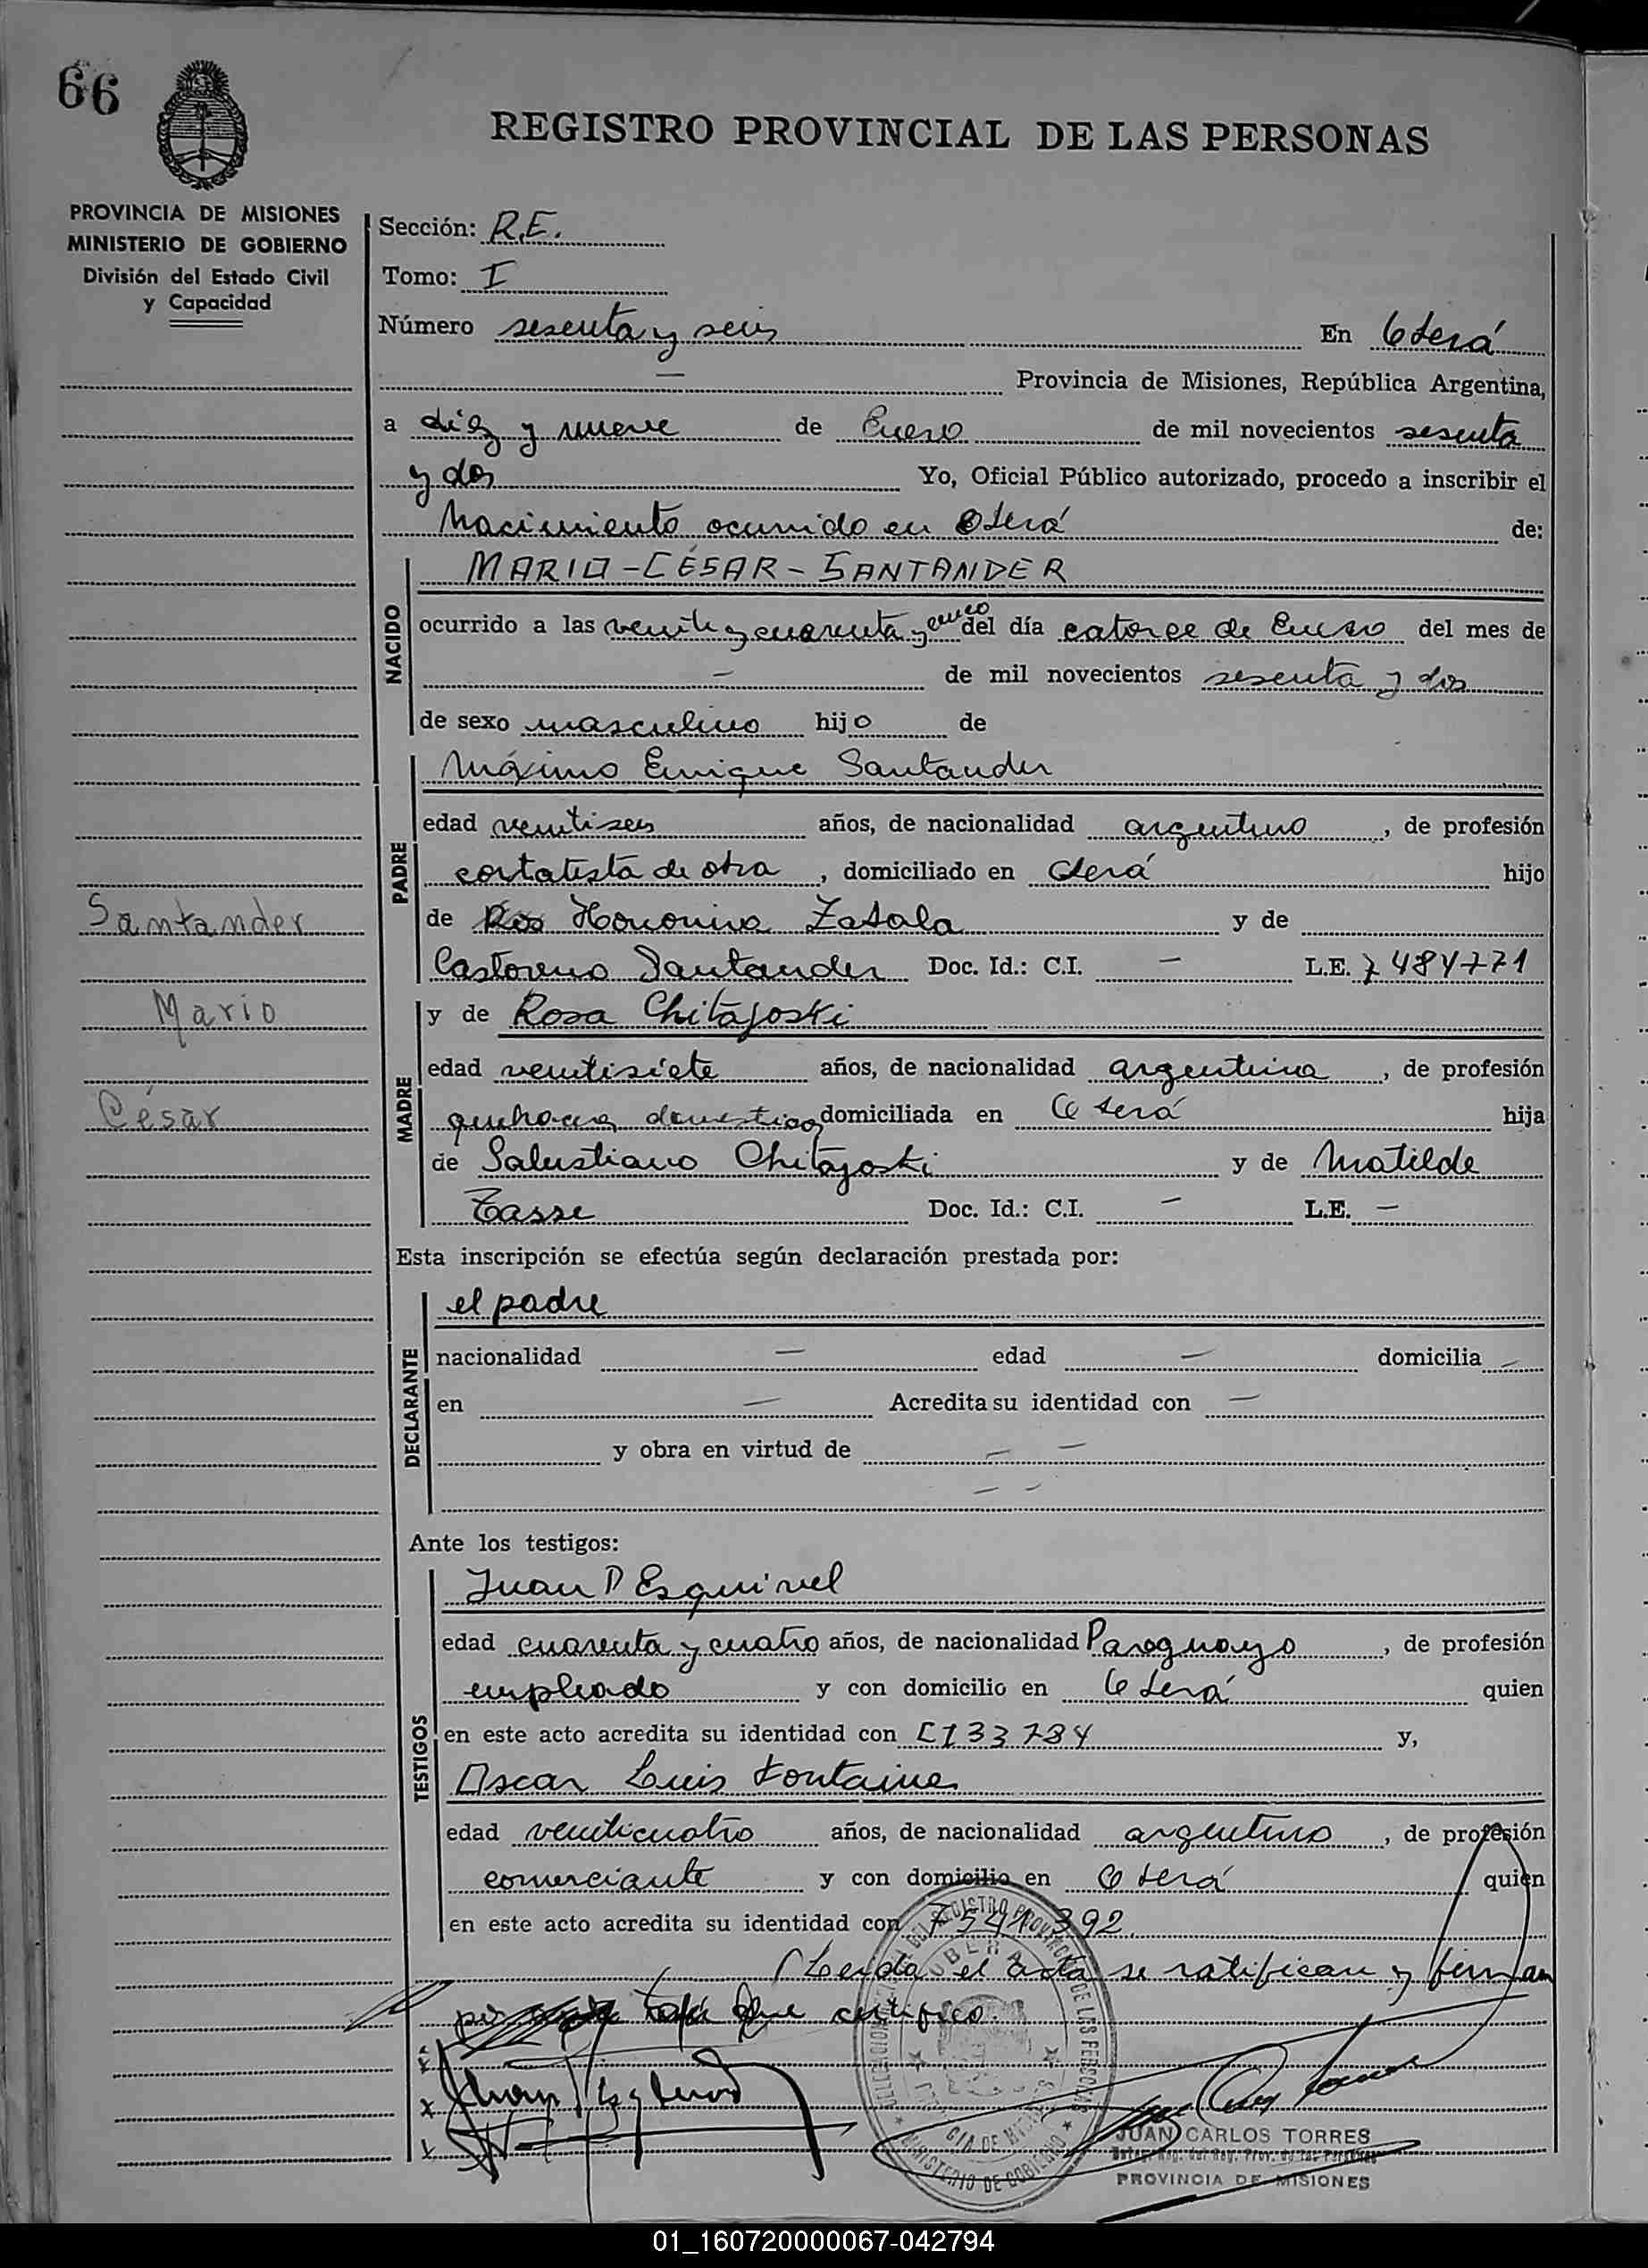 66
REGISTRO PROVINCIAL DE LAS PERSONAS
PROVINCIA DE MISIONES
MINISTERIO DE GOBIERNO
División del Estado Civil
y Capacidad
Sección: R.E.
Tomo: I
Número sesenta y seis En Oberá
— Provincia de Misiones, República Argentina,
a diez y nueve de Enero de mil novecientos sesenta
y dos Yo, Oficial Público autorizado, procedo a inscribir el
Nacimiento ocurrido en Oberá de:
NACIDO
MARIO-CÉSAR-SANTANDER
ocurrido a las veinte y cuarenta y cinco del día catorce de Enero del mes de
— de mil novecientos sesenta y dos
de sexo masculino hijo de
PADRE
Máximo Enrique Santander
edad veintiseis años, de nacionalidad argentino, de profesión
contatista de obra, domiciliado en Oberá hijo
de Honorina Zabala y de
Castoreno Santander Doc. Id.: C.I. — L.E. 7484771
Santander
Mario
César
MADRE
y de Rosa Chitajoski
edad veintisiete años, de nacionalidad argentina, de profesión
quehaceres domesticos domiciliada en Oberá hija
de Salustiano Chitajoski y de Matilde
Tasse Doc. Id.: C.I. — L.E. —
Esta inscripción se efectúa según declaración prestada por:
DECLARANTE
el padre
nacionalidad — edad — domicilia —
en — Acredita su identidad con —
y obra en virtud de — —
— —
Ante los testigos:
TESTIGOS
Juan P Esquivel
edad cuarenta y cuatro años, de nacionalidad Paraguayo, de profesión
empleado y con domicilio en Oberá quien
en este acto acredita su identidad con C133784 y,
Oscar Luis Fontaine
edad veinticuatro años, de nacionalidad argentino, de profesión
comerciante y con domicilio en Oberá quien
en este acto acredita su identidad con 7541392.
Leida el acta se ratifican y firman
por que certifico.
JUAN CARLOS TORRES
PROVINCIA DE MISIONES
MINISTERIO DE GOBIERNO
01_160720000067-042794